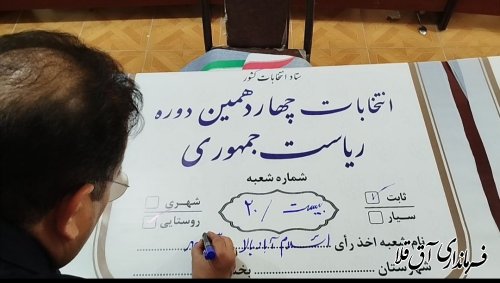 ستاد انتخابات کشور
انتخابات چهاردهمین دوره
ریاست جمهوری
شماره شعبه
ثابت
سیار
بیست / ۲۰
شهری
روستایی
نام شعبه اخذ رأی
شهرستان
بخش
فرمانداری آق قلا